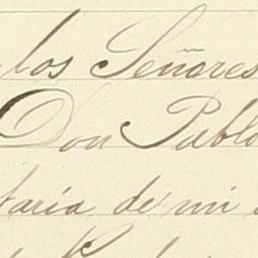 los Señores
Don Pablo
taria de mi